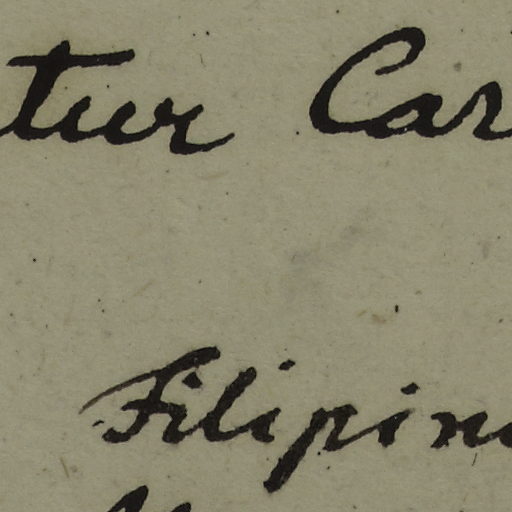 tur Car
Filipin